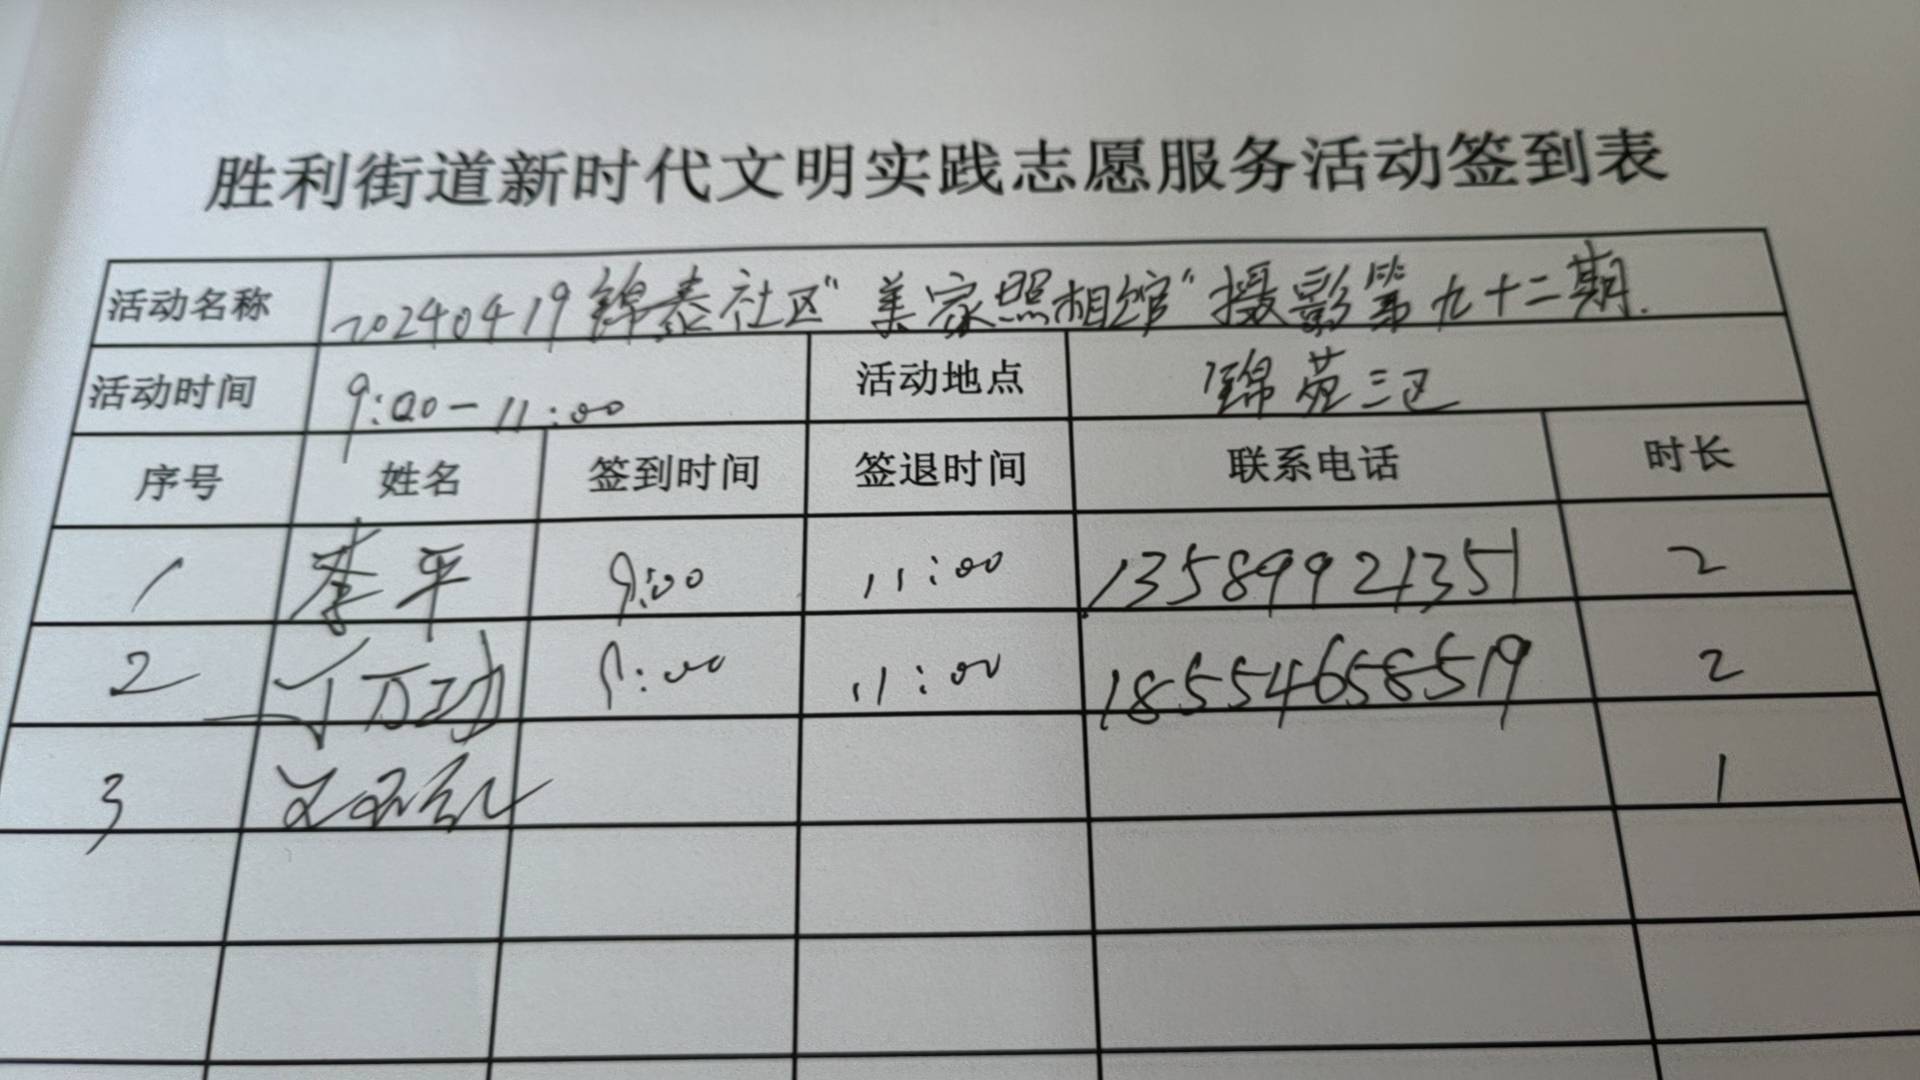 胜利街道新时代文明实践志愿服务活动签到表
活动名称 20240419锦泰社区“美家照相馆”摄影第九十二期.
活动时间 9:00-11:00 活动地点 锦苑三区
序号 姓名 签到时间 签退时间 联系电话 时长
1 李平 9:00 11:00 13589921351 2
2 丁万功 9:00 11:00 18554658519 2
3 1